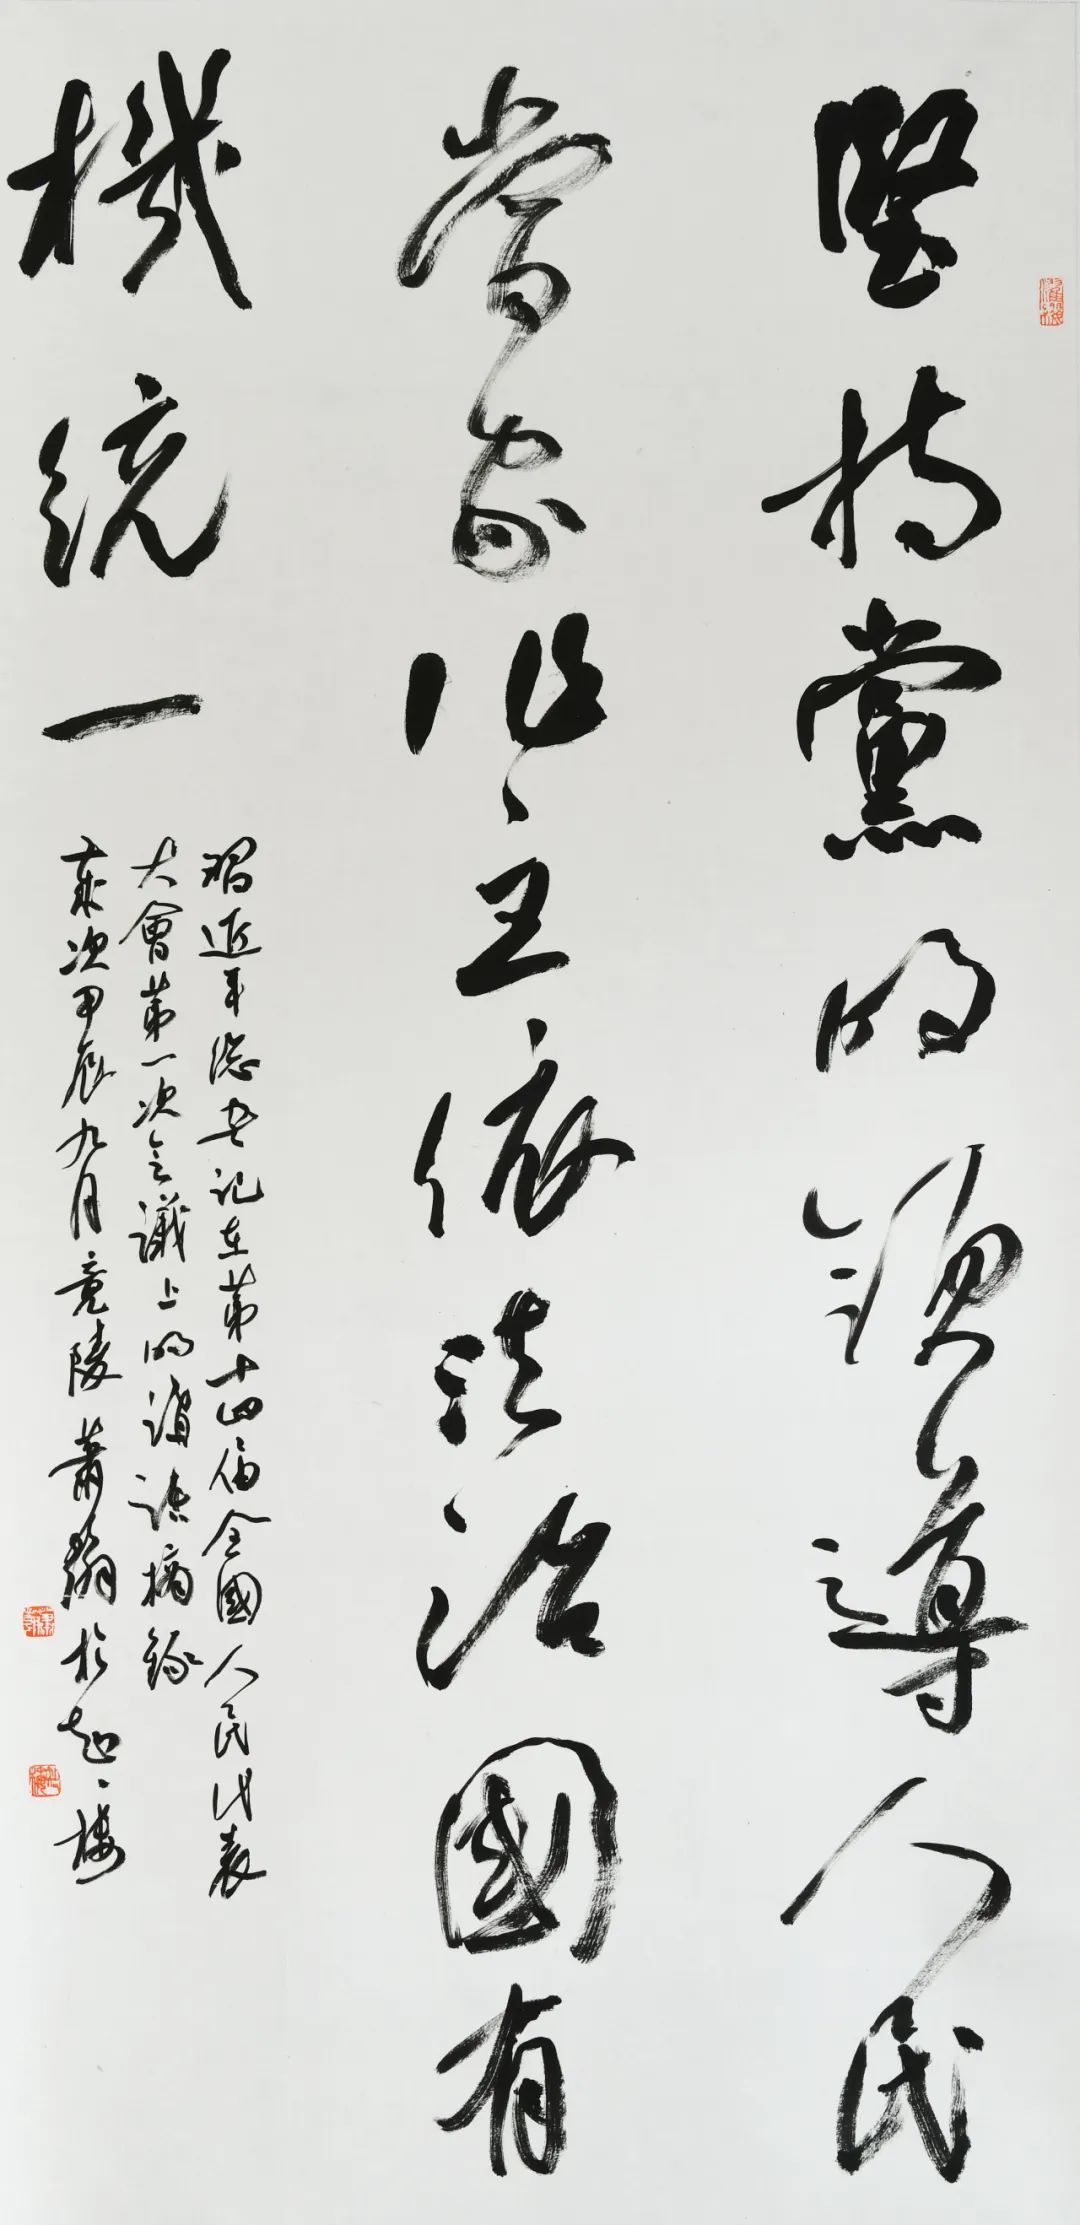 堅持黨的領導人民
當家作主依法治國有
機統一
習近平總书记在第十四届全國人民代表
大會第一次会議上的講話摘録
歲次甲辰九月竟陵蕭翰於起樓